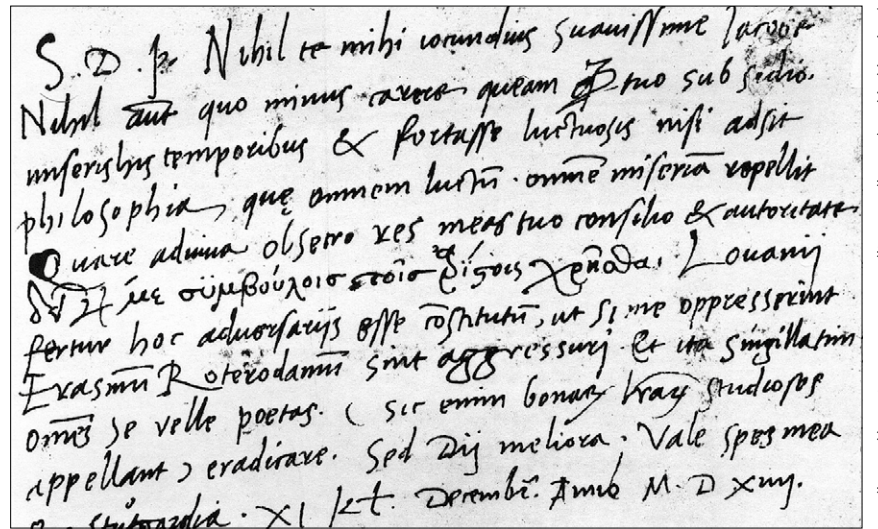 S. D. p. Nihil te mihi iocundius Suauissime Jacobe
Nihil aut quo minus carere queam tuo subsidio.
miseris his temporibus & fortasse luctuosis nisi adsit
philosophia, quę omnem luctū. omnē miseriā repellit
Quare adiuua obsecro res meas tuo consilio & autoritate
με συμβούλοισ Louanij
fertur hoc aduersarijs esse cōstitutū, ut si me oppresserint
Erasmū Roterodamū sint aggressuri Et ita singillatim
omēs se velle poetas. ( sic enim bonarꝫ studiosos
appellant ) eradicare. Sed Dij meliora. Vale spes mea
Stutgardia. XI kł. Decembr. Anno M. D xiiij.